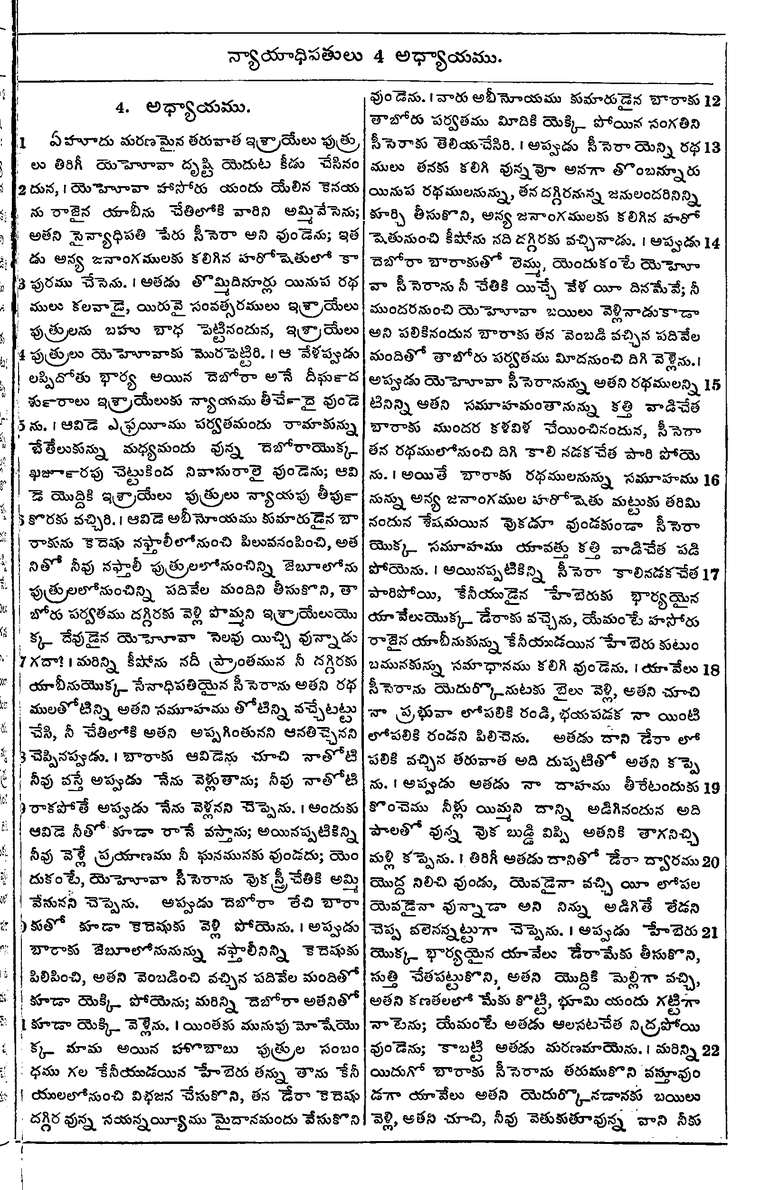 న్యాయాధిపతులు 4 అధ్యాయము.
4. అధ్యాయము.
1 ఏహూదు మరణమైన తరువాత ఇశ్రాయేలు పుత్రు
లు తిరిగీ యెహోవా దృష్టి యెదుట కీడు చేసినం
2 దున, । యెహోవా హాసోరు యందు యేలిన కెనయ
ను రాజైన యాబీను చేతిలోకి వారిని అమ్మివేసెను;
అతని సైన్యాధిపతి పేరు సీసెరా అని వుండెను; ఇత
డు అన్య జనాంగములకు కలిగిన హరోషెతులో కా
3 పురము చేసెను. । ఆతడు తొమ్మిదినూర్లు యినుప రథ
ములు కలవాడై, యిరువై సంవత్సరములు ఇశ్రాయేలు
పుత్రులను బహు బాధ పెట్టినందున, ఇశ్రాయేలు
4 పుత్రులు యెహోవాకు మొరపెట్టిరి. । ఆ వేళప్పుడు
లప్పిదోతు భార్య అయిన దెబోరా అనే దీర్ఘద
శురాలు ఇశ్రాయేలుకు న్యాయము తీర్చేదై వుండె
5 ను. । ఆవిడె ఎఫ్రయీము పర్వతమందు రామాకున్ను
బేతేలుకున్ను మధ్యమందు వున్న దెబోరాయొక్క
ఖర్జూరపు చెట్టుకింద నివాసురాలై వుండెను; ఆవి
డె యొద్దికి ఇశ్రాయేలు పుత్రులు న్యాయపు తీర్పు
కొరకు వచ్చిరి. । ఆవిడె అబీనోయము కుమారుడైన బా
రాకును కెదెషు నఫ్తాలీలోనుంచి పిలువనంపించి, అత
నితో నీవు నఫ్తాలీ పుత్రులలోనుంచిన్ని జెబూలోను
పుత్రులలోనుంచిన్ని పదివేల మందిని తీసుకొని, తా
బోరు పర్వతము దగ్గిరకు వెళ్లి పొమ్మని ఇశ్రాయేలుయొ
క్క దేవుడైన యెహోవా సెలవు యిచ్చి వున్నాడు
7 గదా! । మరిన్ని కీషోను నదీ ప్రాంతమున నీ దగ్గిరకు
యాబీనుయొక్క సేనాధిపతియైన సీసెరాను అతని రథ
ములతోటిన్ని అతని సమూహము తోటిన్ని వచ్చేటట్టు
చేసి, నీ చేతిలోకి అతని అప్పగింతునని ఆనతిచ్చెనని
చెప్పినప్పుడు. । బారాకు ఆవిడెను చూచి నాతోటి
నీవు వస్తే అప్పుడు నేను వెళ్లుతాను; నీవు నాతోటి
రాకపోతే అప్పుడు నేను వెళ్లనని చెప్పెను. । అందుకు
ఆవిడె నీతో కూడా రానే వస్తాను; అయినప్పటికిన్ని
నీవు వెళ్లే ప్రయాణము నీ ఘనమునకు వుండదు; యెం
దుకంటే, యెహోవా సీసెరాను వొక స్త్రీ చేతికి అమ్మి
వేసునని చెప్పెను. అప్పుడు దెబోరా లేచి బారా
కుతో కూడా కెదెషుకు వెళ్లి పోయెను. । అప్పుడు
బారాకు జెబూలోనునున్ను నఫ్తాలీనిన్ని కెదెషుకు
పిలిపించి, అతని వెంబడించి వచ్చిన పదివేల మందితో
కూడా యెక్కి పోయెను; మరిన్ని దెబోరా అతనితో
కూడా యెక్కి వెళ్లెను. । యింతకు మునుపు మోషేయొ
క్క మామ అయిన హొబాబు పుత్రుల సంబం
ధము గల కేనీయుడయిన హేబెరు తన్ను తాను కేనీ
యులలోనుంచి విభజన చేసుకొని, తన డేరా కెదెషు
దగ్గిర వున్న సయన్నయ్యీము మైదానమందు వేసుకొని
వుండెను. । వారు అబీనోయము కుమారుడైన బారాకు 12
తాబోరు పర్వతము మీదికి యెక్కి పోయిన సంగతిని
సీసెరాకు తెలియచేసిరి. । అప్పుడు సీసెరా యెన్ని రథ 13
ములు తనకు కలిగి వున్నవో అనగా తొంబన్నూరు
యినుప రథములనున్ను, తన దగ్గిరనున్న జనులందరినిన్ని
కూర్చి తీసుకొని, అన్య జనాంగములకు కలిగిన హరో
షెతునుంచి కీషోను నది దగ్గిరకు వచ్చినాడు. । అప్పుడు 14
దెబోరా బారాకుతో లెమ్ము, యెందుకంటే యెహో
వా సీసెరాను నీ చేతికి యిచ్చే వేళ యీ దినమేవే; నీ
ముందరనుంచి యెహోవా బయిలు వెళ్లినాడుకాదా
అని పలికినందున బారాకు తన వెంబడి వచ్చిన పదివేల
మందితో తాబోరు పర్వతము మీదనుంచి దిగి వెళ్లెను. ।
అప్పుడు యెహోవా సీసెరానున్ను అతని రథములన్ని 15
టినిన్ని అతని సమూహమంతానున్ను కత్తి వాడిచేత
బారాకు ముందర కళవిళ చేయించినందున, సీసెరా
తన రథములోనుంచి దిగి కాలి నడకచేత పారి పోయె
ను. । అయితే బారాకు రథములనున్ను సమూహము 16
నున్ను అన్య జనాంగముల హరోషెతు మట్టుకు తరిమి
నందున శేషమయిన వొకడూ వుండకుండా సీసెరా
యొక్క సమూహము యావత్తు కత్తి వాడిచేత పడి
పోయెను. । అయినప్పటికిన్ని సీసెరా కాలినడకచేత 17
పారిపోయి, కేనీయుడైన హేబెరుకు భార్యయైన
యావేలుయొక్క డేరాకు వచ్చెను, యేమంటే హసోరు
రాజైన యాబీనుకున్ను కేనీయుడయిన హేబెరు కుటుం
బమునకున్ను సమాధానము కలిగి వుండెను. । యావేలు 18
సీసెరాను యెదుర్కొనుటకు బైలు వెళ్లి, అతని చూచి
నా ప్రభువా లోపలికి రండి, భయపడక నా యింటి
లోపలికి రండని పిలిచెను. అతడు దాని డేరా లో
పలికి వచ్చిన తరువాత అది దుప్పటితో అతని కప్పె
ను. । అప్పుడు అతడు నా దాహము తీరేటందుకు 19
కొంచెము నీళ్లు యిమ్మని దాన్ని అడిగినందున అది
పాలతో వున్న వొక బుడ్డి విప్పి అతనికి తాగనిచ్చి
మళ్లి కప్పెను. । తిరిగీ అతడు దానితో డేరా ద్వారము 20
యొద్ద నిలిచి వుండు, యెవడైనా వచ్చి యీ లోపల
యెవడైనా వున్నాడా అని నిన్ను అడిగితే లేడని
చెప్ప వలెనన్నట్టుగా చెప్పెను. । అప్పుడు హేబెరు 21
యొక్క భార్యయైన యావేలు డేరామేకు తీసుకొని,
సుత్తి చేతపట్టుకొని, అతని యొద్దికి మెల్లిగా వచ్చి,
అతని కణతలలో మేకు కొట్టి, భూమి యందు గట్టిగా
నాటెను; యేమంటే అతడు ఆలసటచేత నిద్రపోయి
వుండెను; కాబట్టి అతడు మరణమాయెను. । మరిన్ని 22
యిదుగో బారాకు సీసెరాను తరుముకొని వస్తూవుం
డగా యావేలు అతని యెదుర్కొనడానకు బయిలు
వెళ్లి, అతని చూచి, నీవు వెతుకుతూవున్న వాని నీకు